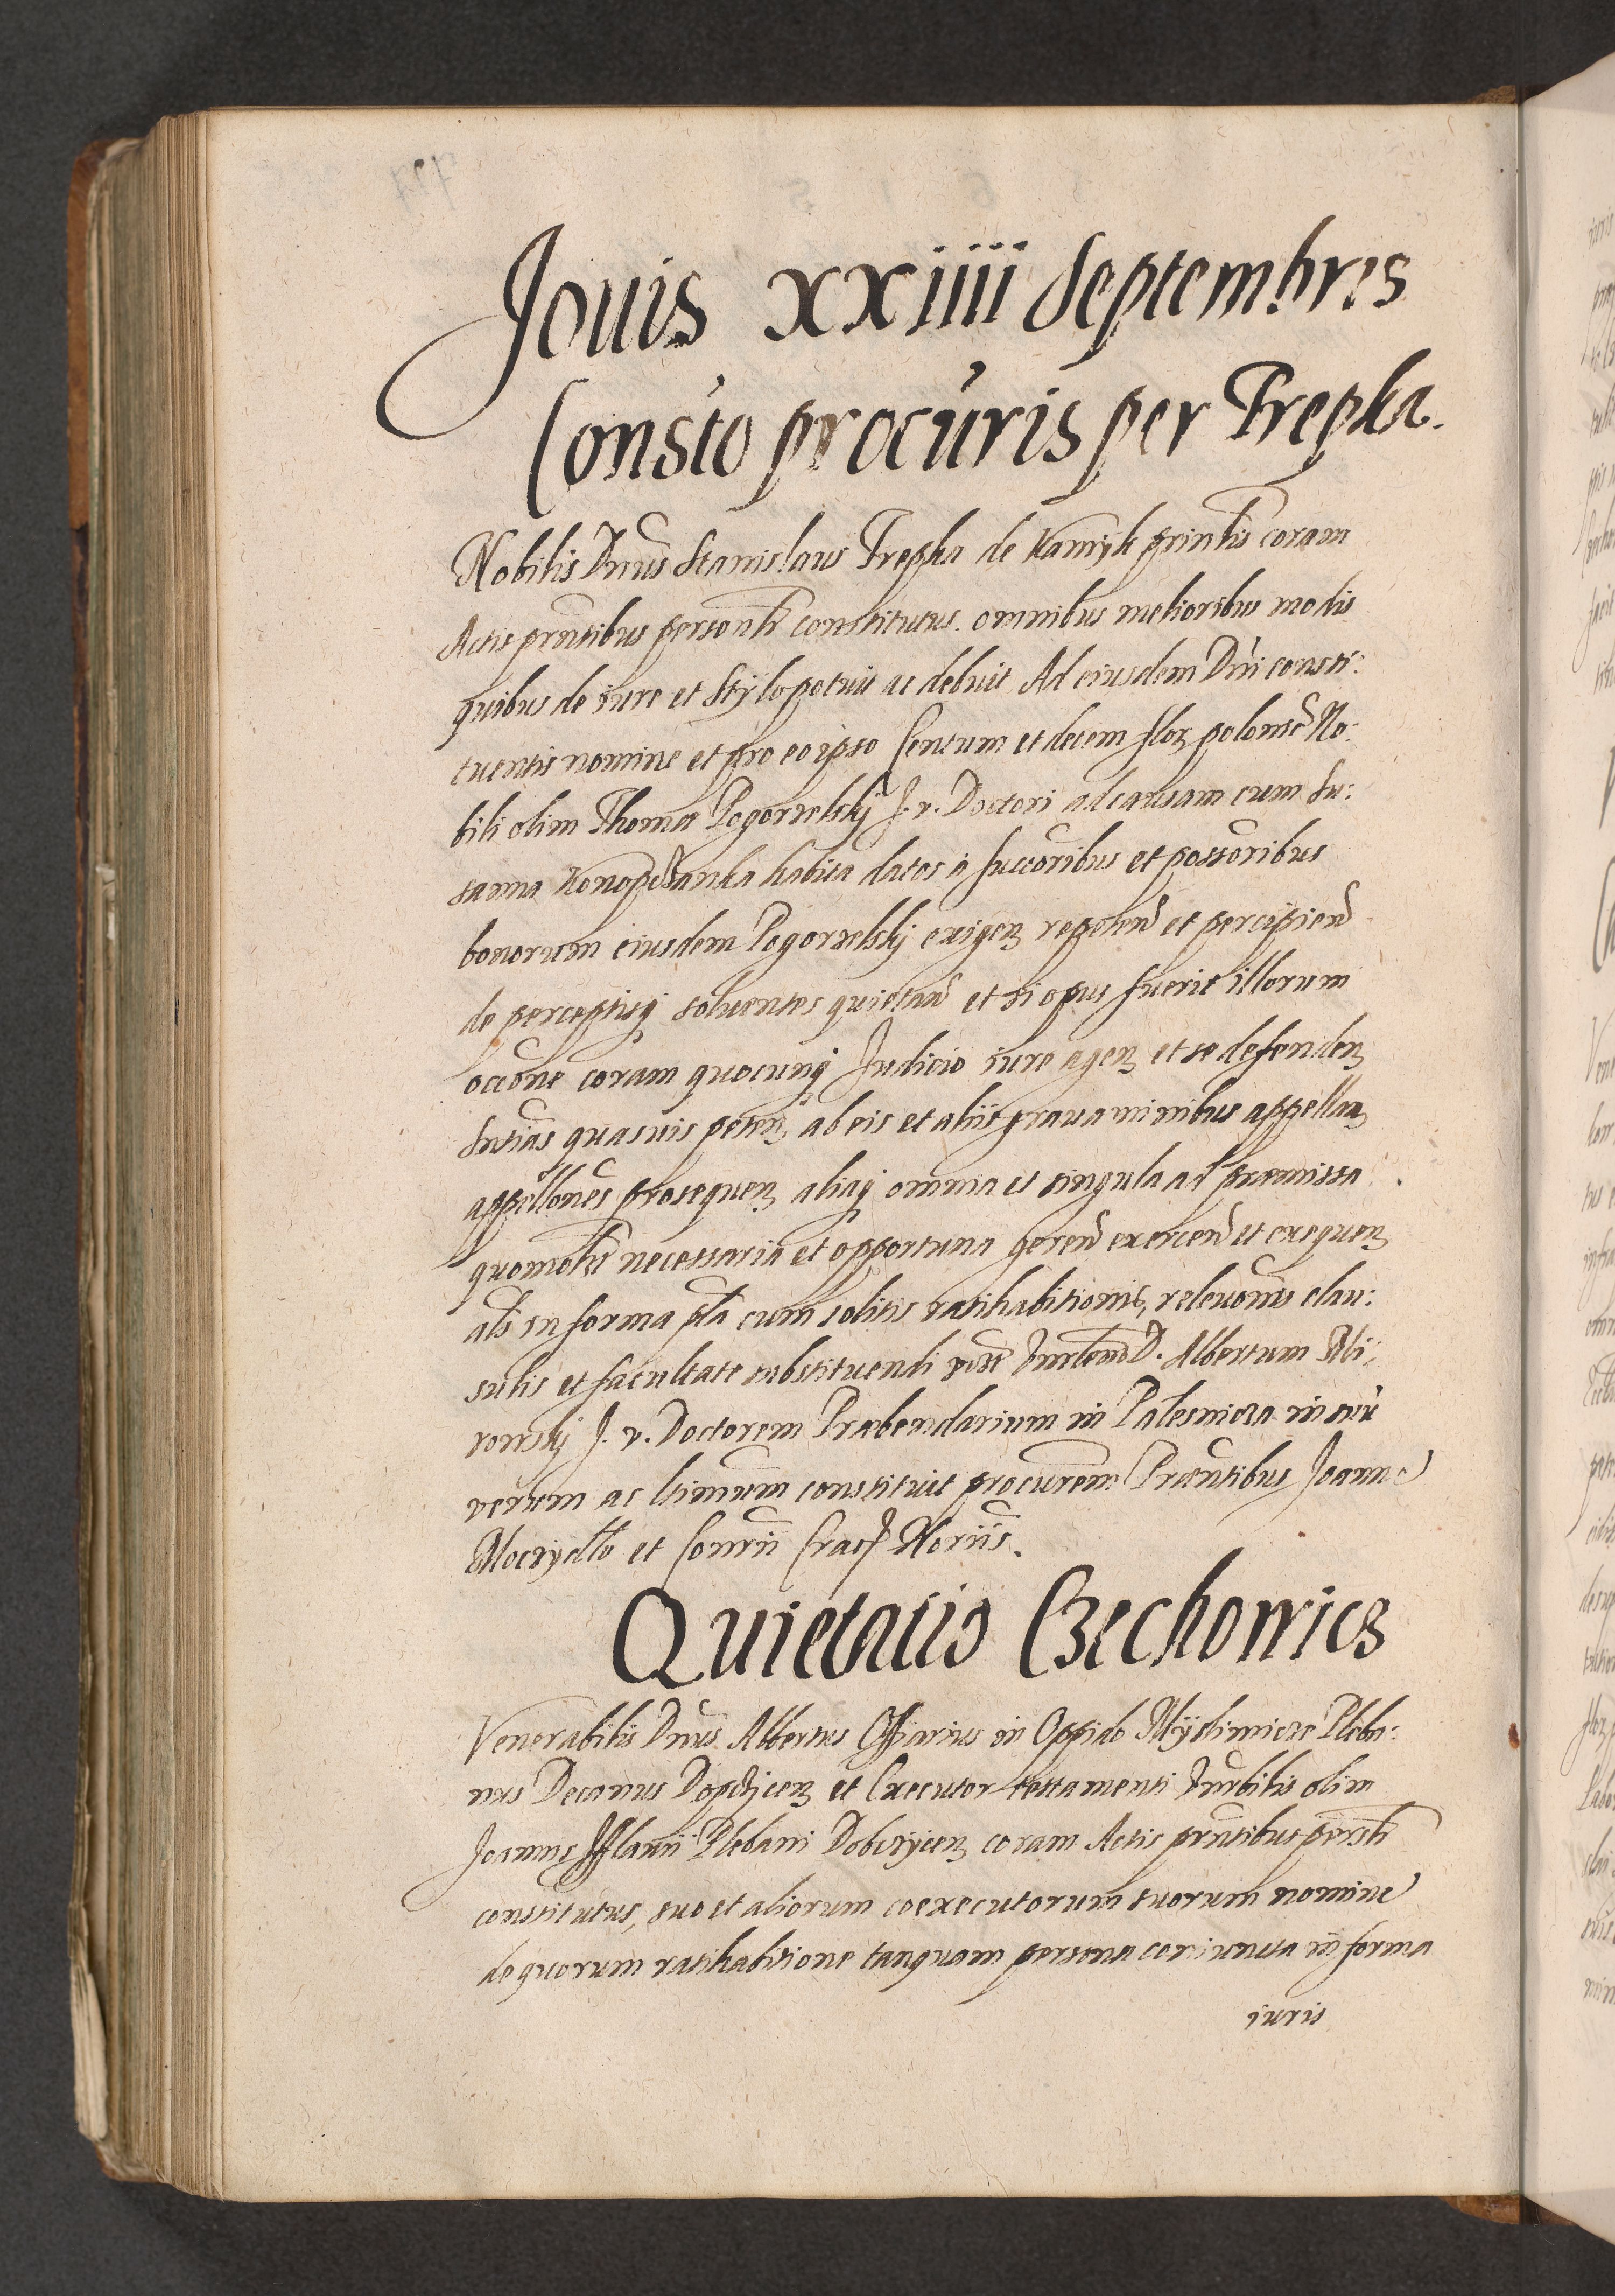 Jouis xxiiii Septembris
Consto procuris per Trepka.
Nobilis Dnus Stanislaus Trepka de Kamyk prinlis coram
Actis prntibus personlr constitutus. omnibus melioribus modis
quibus de iure et Stylo potuit ac debuit Ad eiusdem Dni consti:
tuentis nomine et pro eo ipso Centum et decem flor polonic No:
bili olim Thomæ Pogorzelskj J. v. Doctori ad causam cum Su:
sanna Konopczanka habita datos à succoribus et possoribus
bonorum eiusdem Pogorzelskj exigen repeten et percipien
de perceptisq soluentes quietan et si opus fuerit illorum
occone coram quocunq Judicio iure agen et se defenden
Sntias quasuis peten, ab eis et aliis grauaminibus appellan
appellones prosequen aliaq omnia et singula ad præmissa
quomolr necessaria et opportuna geren exercen et exequen
als in forma pla cum solitis ratihabitionis, releuonis clau:
sulis et facultate substituendi D. Albertum Mi:
ronskj J. v. Doctorem Præbendarium in Palesnicza in suu
verum ac ltimum constituit procurem Præntibus Joanne
Moczydlo et Conrii Crac Noriis.
Quietatio Czechowics
Venerabilis Dnus Albertus in Oppido Myslimicze Pleba:
nus Decanus Dopczicen et Executor testamenti olim
Joannis Plebani Dobczycen coram Actis prntibus persoli
constitutus, suo et aliorum coexecutorum suorum nomine
de quorum ratihabitione tanquam persona coniuncta in forma
iuris